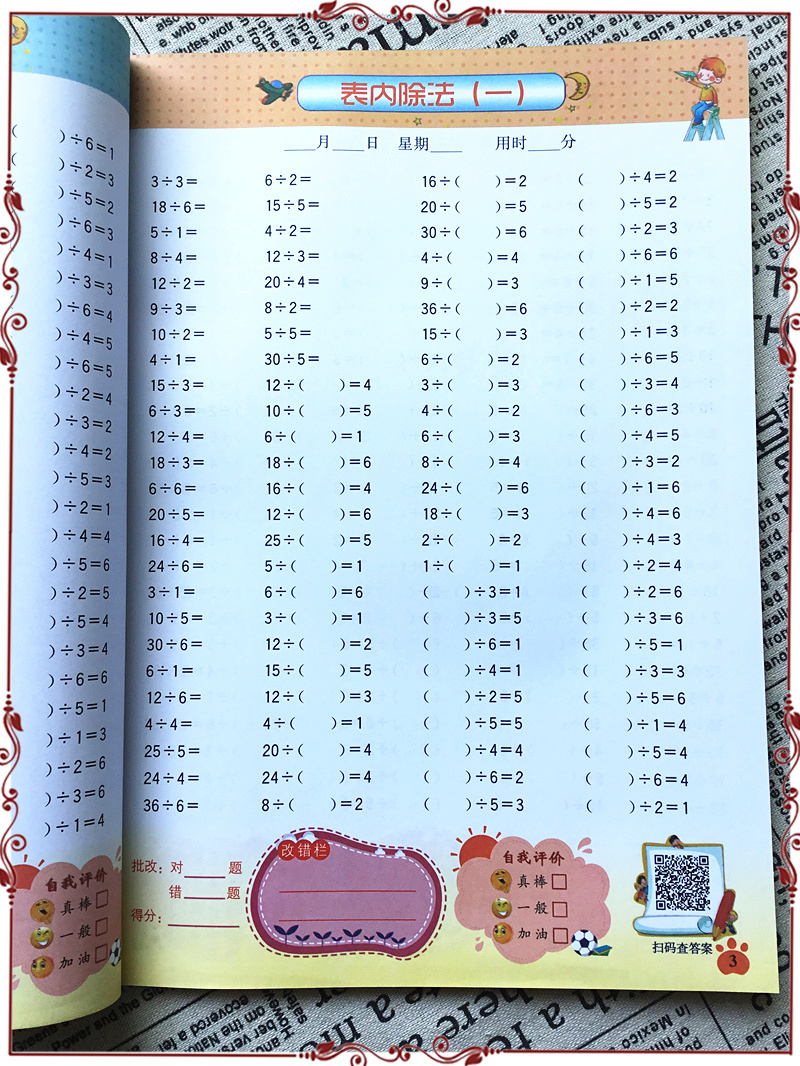 表内除法（一）
____月____日 星期____ 用时____分
3÷3= 6÷2= 16÷( )=2 ( )÷4=2
18÷6= 15÷5= 20÷( )=5 ( )÷5=2
5÷1= 4÷2= 30÷( )=6 ( )÷2=3
8÷4= 12÷3= 4÷( )=4 ( )÷6=6
12÷2= 20÷4= 9÷( )=3 ( )÷1=5
9÷3= 8÷2= 36÷( )=6 ( )÷2=2
10÷2= 5÷5= 15÷( )=3 ( )÷1=3
4÷1= 30÷5= 6÷( )=2 ( )÷6=5
15÷3= 12÷( )=4 3÷( )=3 ( )÷3=4
6÷3= 10÷( )=5 4÷( )=2 ( )÷6=3
12÷4= 6÷( )=1 6÷( )=3 ( )÷4=5
18÷3= 18÷( )=6 8÷( )=4 ( )÷3=2
6÷6= 16÷( )=4 24÷( )=6 ( )÷1=6
20÷5= 12÷( )=6 18÷( )=3 ( )÷4=6
16÷4= 25÷( )=5 2÷( )=2 ( )÷4=3
24÷6= 5÷( )=1 1÷( )=1 ( )÷2=4
3÷1= 6÷( )=6 ( )÷3=1 ( )÷2=6
10÷5= 3÷( )=1 ( )÷3=5 ( )÷3=6
30÷6= 12÷( )=2 ( )÷6=1 ( )÷5=1
6÷1= 15÷( )=5 ( )÷4=1 ( )÷3=3
12÷6= 12÷( )=3 ( )÷2=5 ( )÷5=6
4÷4= 4÷( )=1 ( )÷5=5 ( )÷1=4
25÷5= 20÷( )=4 ( )÷4=4 ( )÷5=4
24÷4= 24÷( )=4 ( )÷6=2 ( )÷6=4
36÷6= 8÷( )=2 ( )÷5=3 ( )÷2=1
批改：对____题
错____题
得分：________
改错栏
自我评价
真棒□
一般□
加油□
扫码查答案
3
( )÷6=1
)÷2=3
)÷5=2
)÷6=3
)÷4=1
)÷3=3
)÷6=4
)÷4=5
)÷6=5
)÷2=4
)÷3=2
)÷4=2
)÷5=3
)÷2=1
)÷4=4
)÷5=6
)÷2=5
)÷5=4
)÷3=4
)÷6=6
)÷5=1
)÷1=3
)÷2=6
)÷3=6
)÷1=4
自我评价
真棒□
一般□
加油□